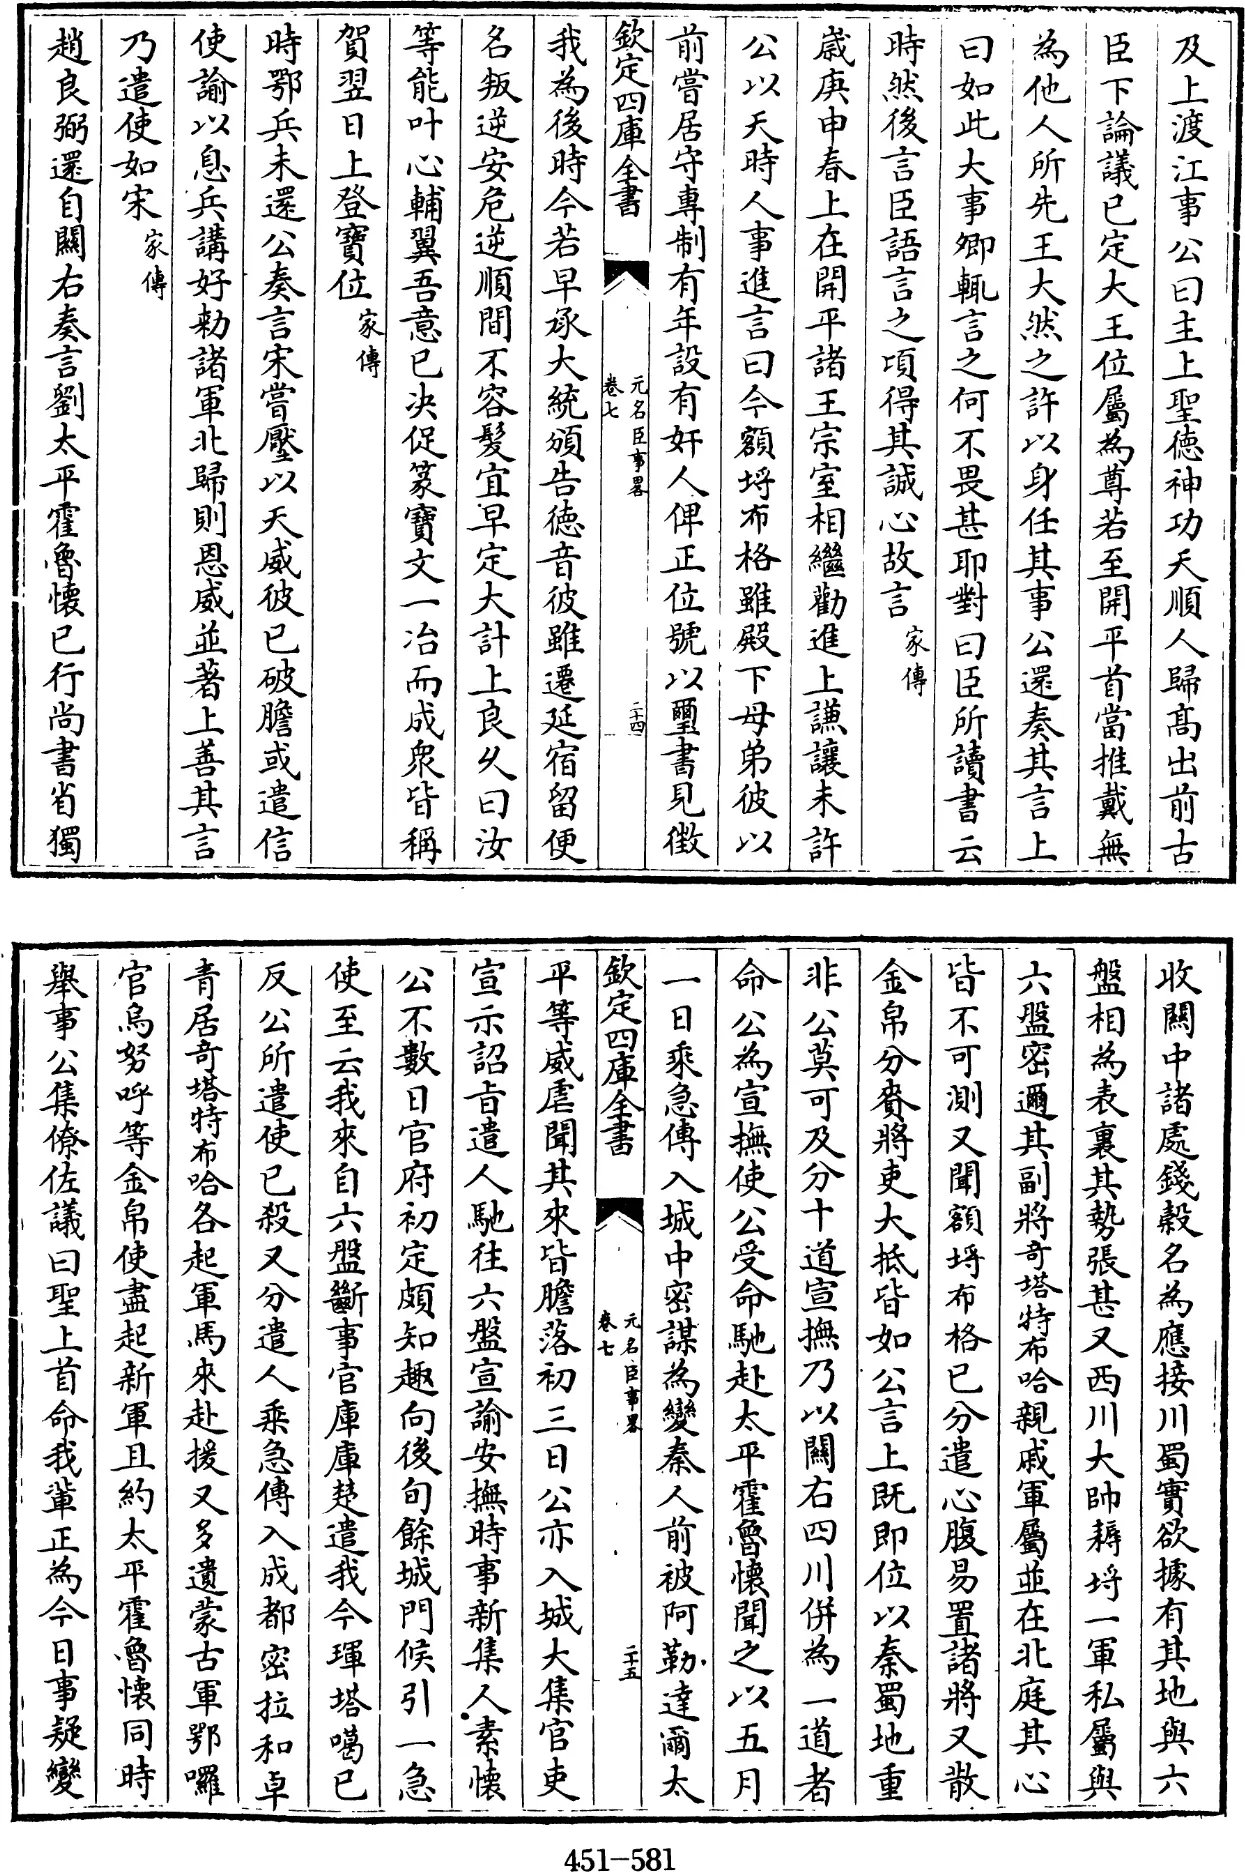 及上渡江事公曰主上聖徳神功天順人歸髙出前古
臣下論議已定大王位屬為尊若至開平首當推戴無
為他人所先王大然之許以身任其事公還奏其言上
曰如此大事卿輒言之何不畏甚耶對曰臣所讀書云
時然後言臣語言之頃得其誠心故言家傳
歳庚申春上在開平諸王宗室相繼勸進上謙讓未許
公以天時人事進言曰今額埒布格雖殿下母弟彼以
前嘗居守專制有年設有奸人俾正位號以璽書見徴
欽定四庫全書
元名臣事畧
卷七
二十四
我為後時今若早承大統頒告徳音彼雖遷延宿留便
名叛逆安危逆順間不容髮宜早定大計上良乆曰汝
等能叶心輔翼吾意已决促篆寶文一冶而成衆皆稱
賀翌日上登寶位家傳
時鄂兵未還公奏言宋嘗壓以天威彼已破膽或遣信
使諭以息兵講好勅諸軍北歸則恩威並著上善其言
乃遣使如宋家傳
趙良弼還自關右奏言劉太平霍魯懐已行尚書省獨
收關中諸處錢榖名為應接川蜀實欲據有其地與六
盤相為表裏其勢張甚又西川大帥耨埒一軍私屬與
六盤密邇其副將竒塔特布哈親戚軍屬並在北庭其心
皆不可測又聞額埒布格已分遣心腹易置諸將又散
金帛分賚將吏大抵皆如公言上既即位以秦蜀地重
非公莫可及分十道宣撫乃以關右四川併為一道者
命公為宣撫使公受命馳赴太平霍魯懐聞之以五月
一日乘急傳入城中密謀為變秦人前被阿勒達爾太
欽定四庫全書
元名臣事畧
卷七
二十五
平等威虐聞其來皆膽落初三日公亦入城大集官吏
宣示詔旨遣人馳往六盤宣諭安撫時事新集人素懐
公不數日官府初定頗知趣向後旬餘城門候引一急
使至云我來自六盤斷事官庫庫楚遣我今琿塔噶已
反公所遣使已殺又分遣人乘急傳入成都密拉和卓
青居竒塔特布哈各起軍馬來赴援又多遺蒙古軍鄂囉
官烏努呼等金帛使盡起新軍且約太平霍魯懐同時
舉事公集僚佐議曰聖上首命我軰正為今日事疑變
451-581